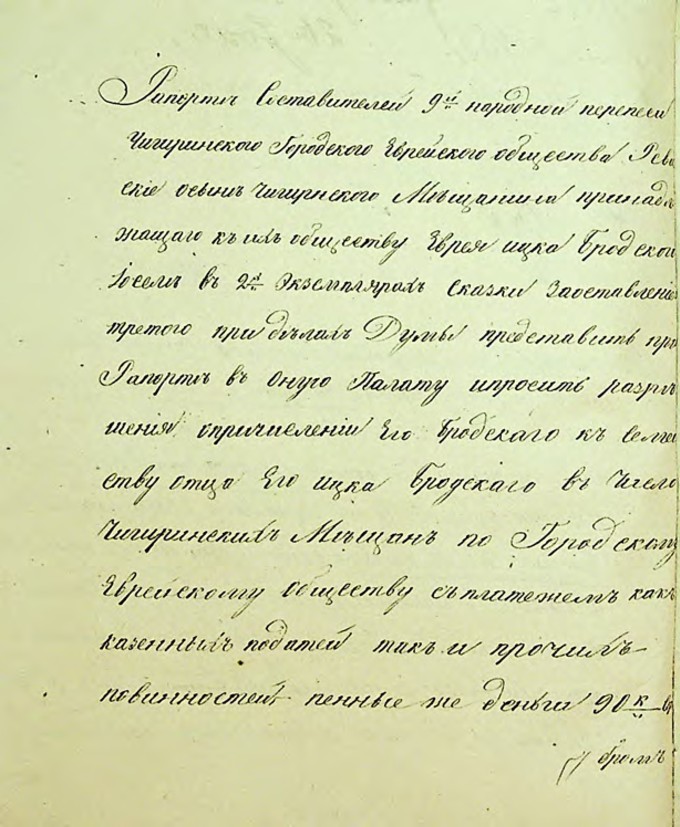 Рапортъ Составителей 9й народной переписи
Чигиринского Городского Еврейского общества Реви
скіе осынѣ Чигирнского Мѣщанина принадл
жащаго къ ихъ обществу Еврея ицка Бродской
Іосемъ въ 2х Экземплярахъ сказки Заоставленіе
третого при дѣлахъ Думы представить при
Рапортѣ въ Оную Палату ипросить разрѣ
шенія опричисленіи Его Бродскаго къ Семей
ству отца Его ицка Бродскаго въ Число
Чигиринскихъ Мѣщанъ по Городскому
Еврейскому обществу съплатежемъ какъ
казенныхъ податей такъ и прочихъ
повинностей пенные же деньги 90 к